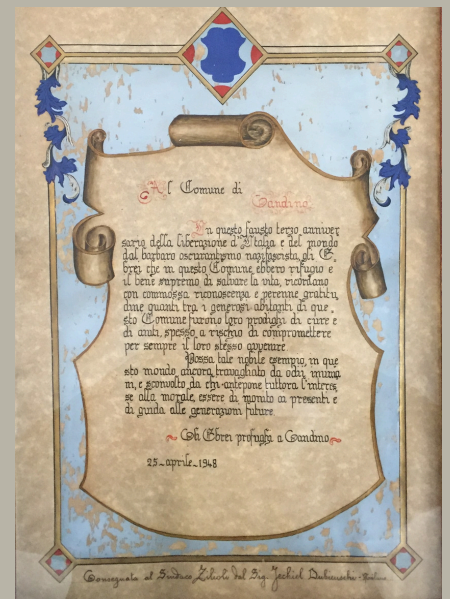 Al Comune di
Gandino
In questo fausto terzo anniver
sario della liberazione d'Italia e del mondo
dal barbaro oscurantismo nazifascista gli E-
brei che in questo Comune ebbero rifugio e
il bene supremo di salvare la vita, ricordano
con commossa riconoscenza e perenne gratitu-
dine quanti tra i generosi abitanti di que-
sto Comune furono loro prodighi di cure e
di aiuti, spesso a rischio di compromettere
per sempre il loro stesso avvenire.
Possa tale nobile esempio, in que
sto mondo ancora travagliato da odi, inuma
ni, e sconvolto da chi antepone tuttora l'interes
se alla morale, essere di monito ai presenti e
di guida alle generazioni future.
Gli Ebrei profughi a Gandino
25-aprile-1948
Consegnata al Sindaco Zilioli dal Sig. Jechiel